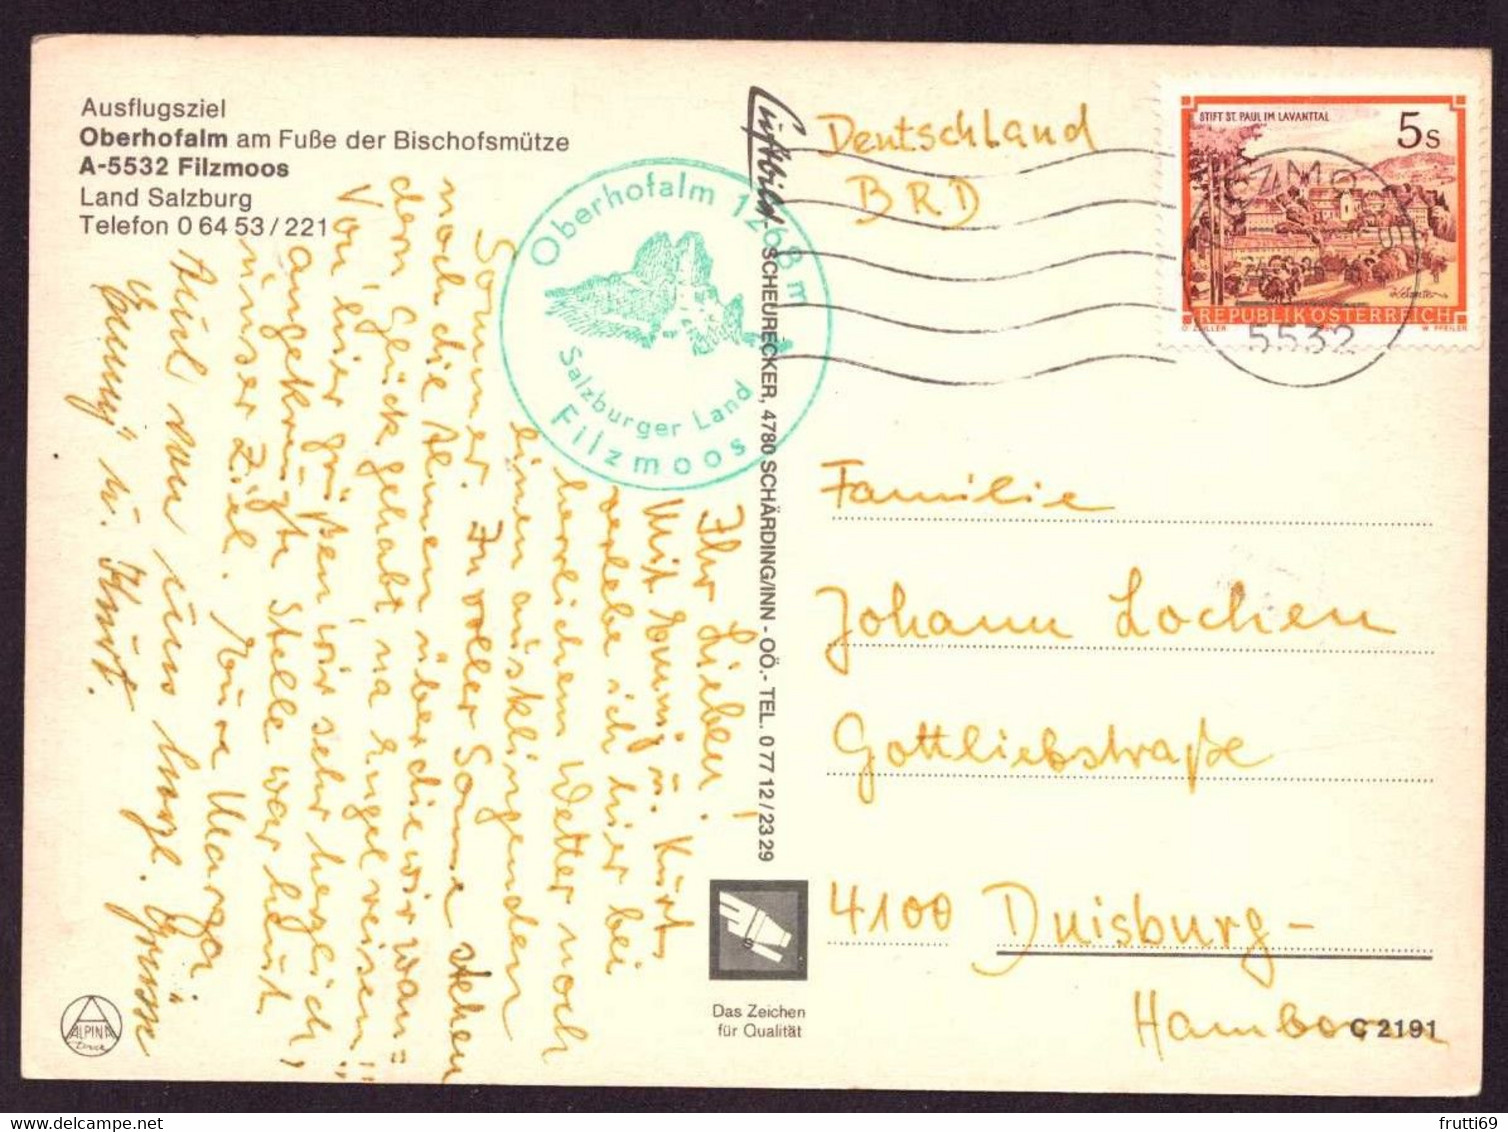 Ausflugsziel
Oberhofalm am Fuße der Bischofsmütze
A-5532 Filzmoos
Land Salzburg
Telefon 0 64 53 / 221
Oberhofalm 1268 m
Salzburger Land
Filzmoos
Luftbild - SCHEURECKER, 4780 SCHÄRDING/INN - OÖ.- TEL. 0 77 12 / 23 29
Deutschland
BRD
STIFT ST. PAUL IM LAVANTTAL
5 S
REPUBLIK ÖSTERREICH
W. PFEILER
5532
Ihr Lieben!
Mit Emmy u. Kurt
verlebe ich hier bei
herrlichem Wetter noch
einen ausklingenden
Sommer. In voller Sonne stehen
noch die Almen über die wir wan=
dern. Glück gehabt na Engel reisen!!
Von hier grüßen wir sehr herzlich,
angekreuzte Stelle war heut
unser Ziel. Eure Marga
Auch von uns herzl. Grüsse
Emmy u. Kurt.
Familie
Johann Lochen
Gottliebstraße
4100 Duisburg-
Hamborn
Das Zeichen
für Qualität
C 2191
ALPINA
Druck
frutti69